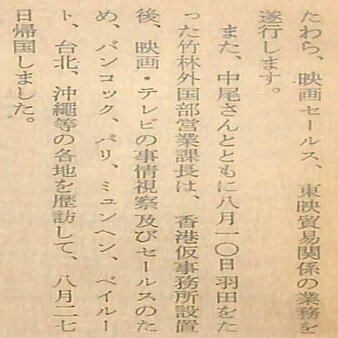 たわら、映画セールス、東映貿易関係の業務を
遂行します。
また、中尾さんとともに八月一〇日羽田をた
った竹林外国部営業課長は、香港仮事務所設置
後、映画・テレビの事情視察及びセールスのた
め、バンコック、パリ、ミュンヘン、ベイルー
ト、台北、沖繩等の各地を歴訪して、八月二七
日帰国しました。